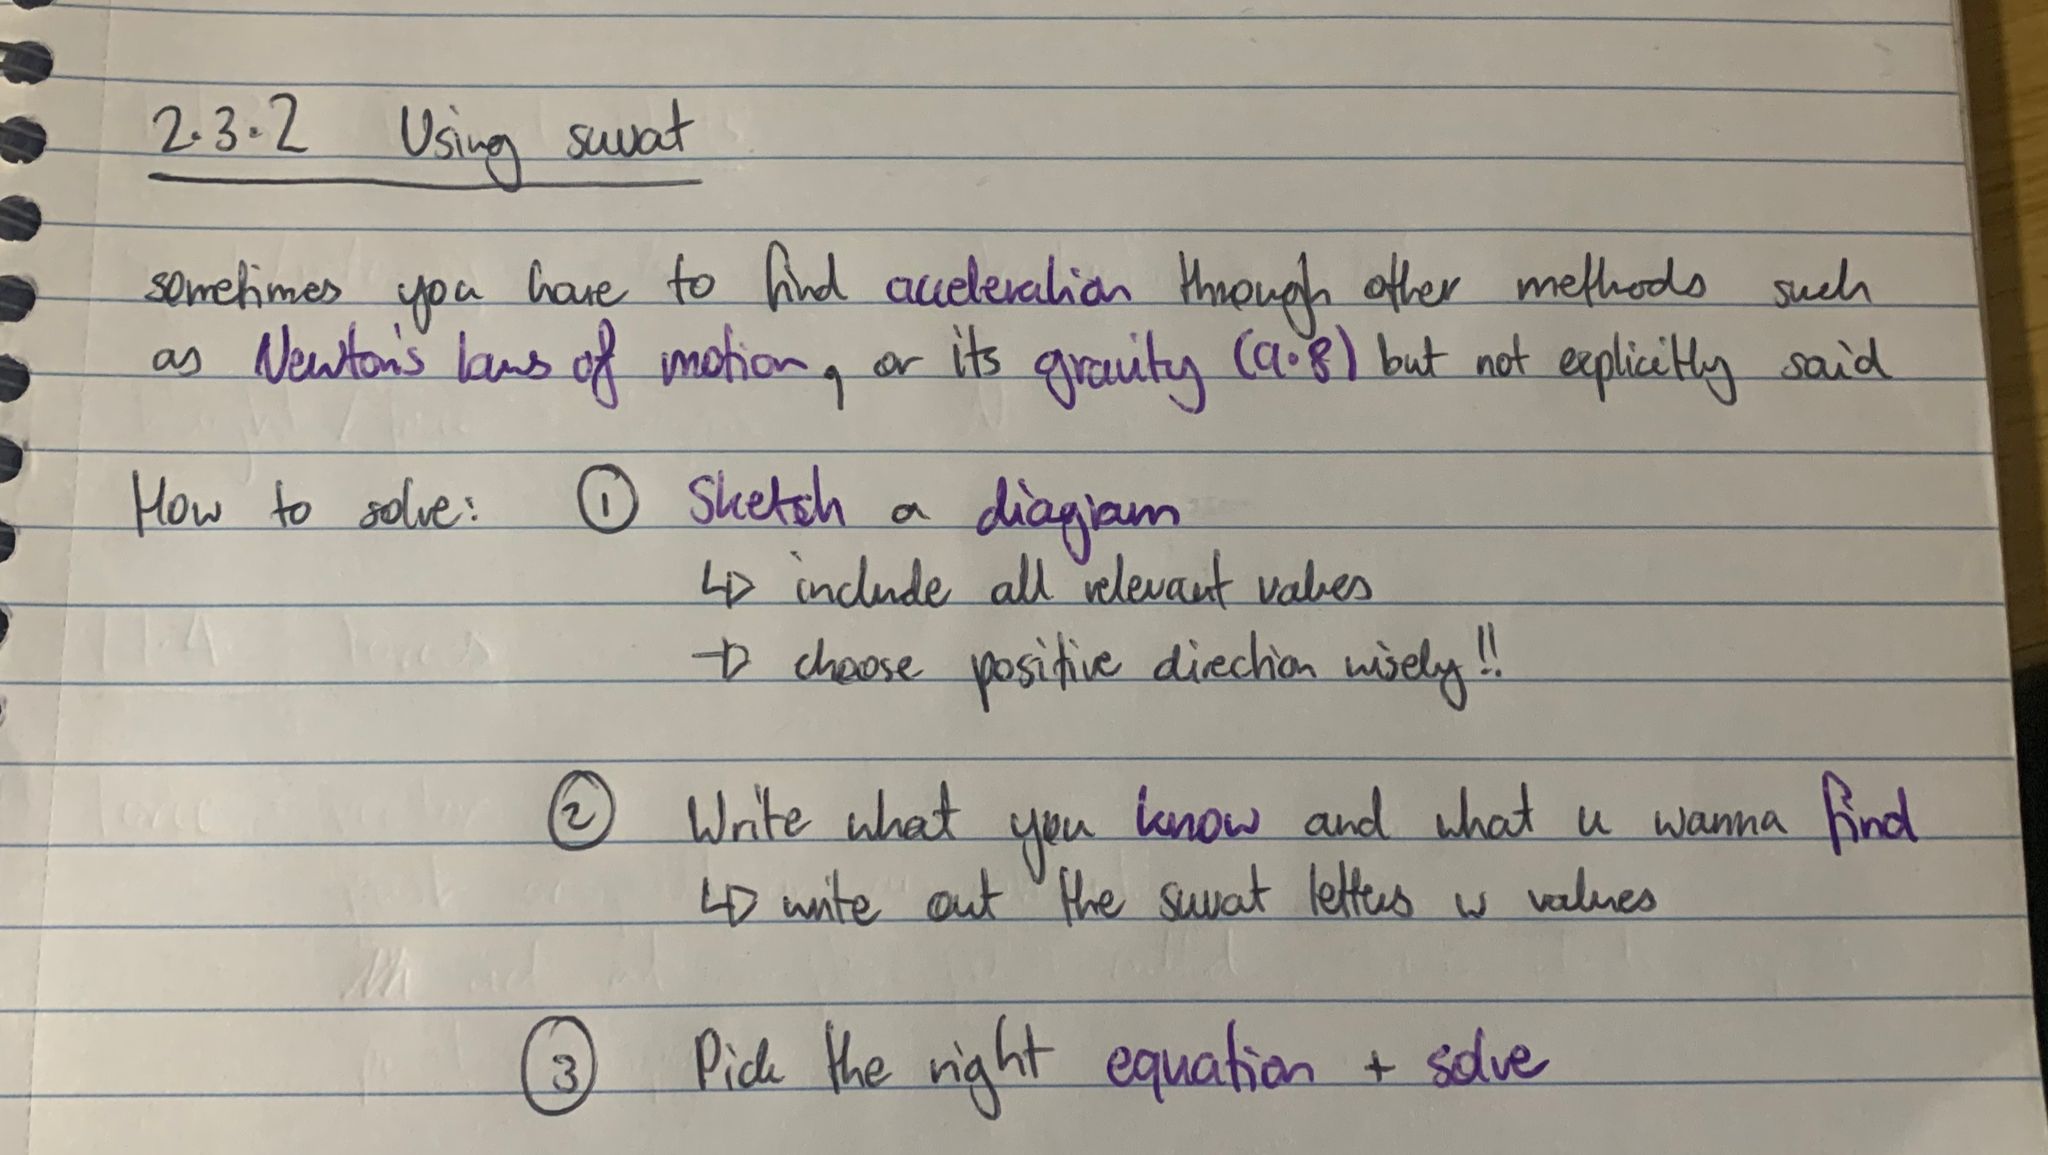 2.3.2 Using suvat
sometimes you have to find acceleration through other methods such
as Newton's laws of motion, or its gravity (9.8) but not explicitly said
How to solve: ① Sketch a diagram
↳ include all relevant values
→ choose positive direction wisely!!
② Write what you know and what u wanna find
↳ write out the suvat letters w values
③ Pick the right equation + solve